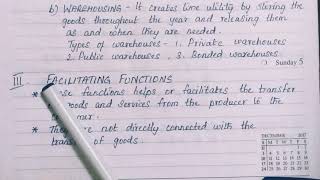 b) WAREHOUSING - It creates time utility by storing the
goods throughout the year and releasing them
as and when they are needed.
Types of warehouses - 1. Private warehouses
2. Public warehouses 3. Bonded warehouses.
Sunday 5
III FACILITATING FUNCTIONS
* functions helps or facilitates the transfer
goods and services from the producer to the
* are not directly connected with the
of goods.
DECEMBER 2017